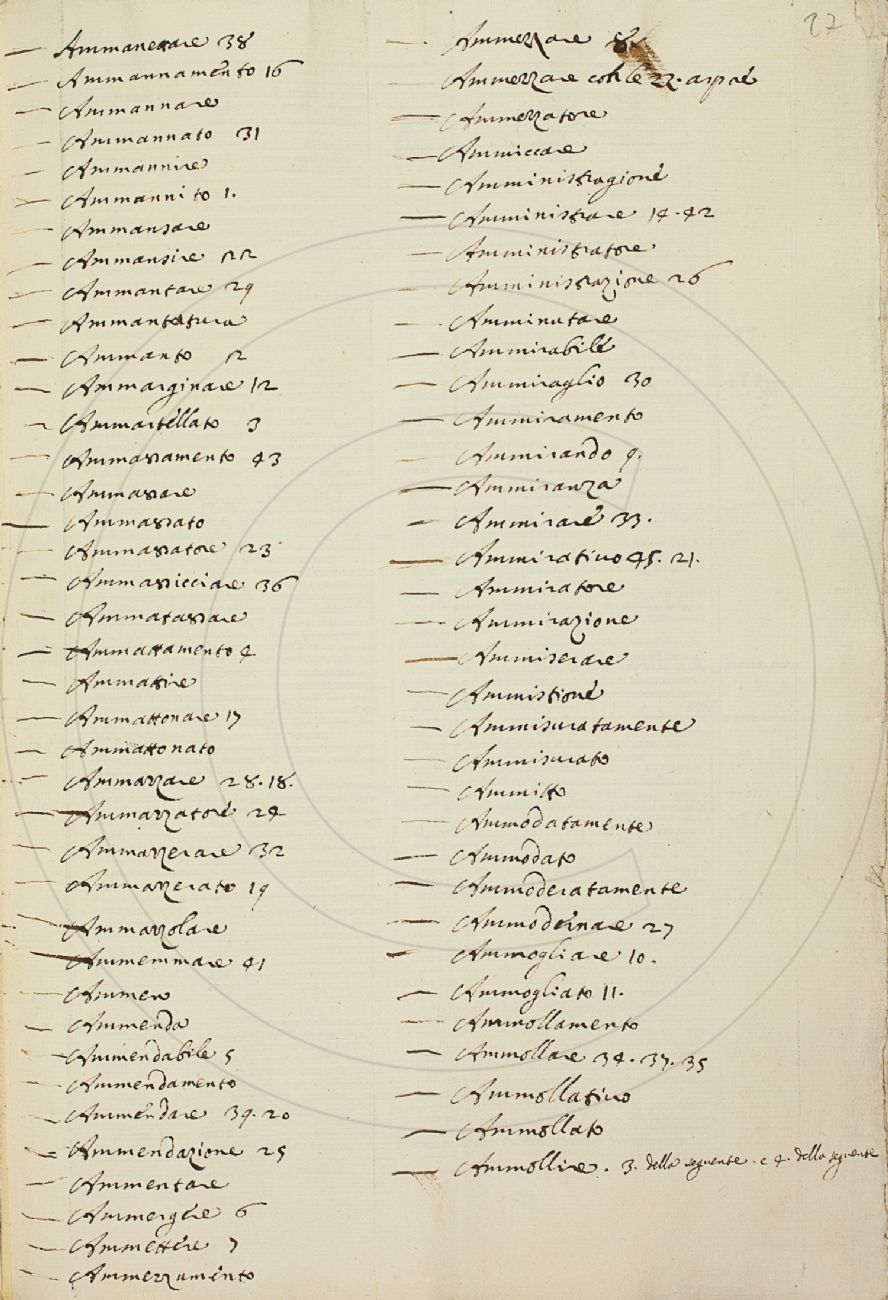 27
Ammanettare 38
Ammannamento 16
Ammannare
Ammannato 31
Ammannire
Ammannito 1.
Ammansare
Ammansire 22
Ammantare 29
Ammantatura
Ammanto 2
Ammarginare 12
Ammartellato 3
Ammassamento 43
Ammassare
Ammassato
Ammassatore 23
Ammassicciare 36
Ammatassare
Ammattamento 4
Ammattire
Ammattonare 17
Ammattonato
Ammazzare 28. 18.
Ammazzatore 24
Ammazzerare 32
Ammazzerato 19
Ammazzolare
Ammemmare 41
Ammen
Ammenda
Ammendabile 5
Ammendamento
Ammendare 39. 20
Ammendazione 25
Ammentare
Ammergere 6
Ammettere 7
Ammezzamento
Ammezzare 8.
Ammezzare colle zz. aspre
Ammezzatore
Ammiccare
Amministragione
Amministrare 14. 42
Amministratore
Amministrazione 26
Amminutare
Ammirabile
Ammiraglio 30
Ammiramento
Ammirando 9.
Ammiranza
Ammirare 33.
Ammirativo 45. 21.
Ammiratore
Ammirazione
Ammiserare
Ammistione
Ammisuratamente
Ammisurato
Ammitto
Ammodatamente
Ammodato
Ammoderatamente
Ammodernare 27
Ammogliare 10.
Ammogliato 11.
Ammollamento
Ammollare 34. 37. 35
Ammollativo
Ammollato
Ammollire. 3. della seguente. e 4. della seguente